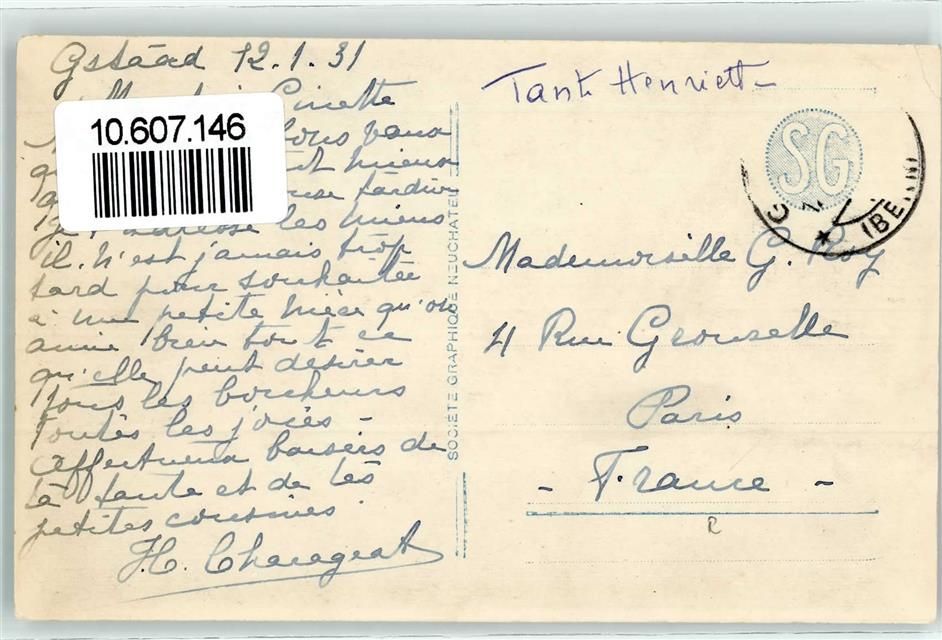 Gstáad 12.1.31
Ginette
10.607.146
vous
mieux
tardive
laisse les miens
il n'est jamais trop
tard pour souhaitée
à une petite nièce qu'on
aime bien tout ce
qu'elle peut désirer
Tous les bonheurs
Toutes les joies -
Affectueux baisers de
ta tante et de tes
petites cousines
H. Charageat
SOCIÉTÉ GRAPHIQUE NEUCHATEL
Tante Henriett-
SG
Mademoiselle G. Roy
4 Rue Crouselle
Paris
- France -
R